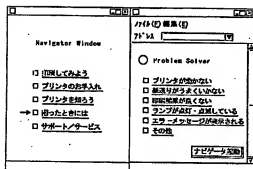 Navigator Window
印刷してみよう
プリンタのお手入れ
プリンタを知ろう
困ったときには
サポート/サービス
ファイル(F) 編集(E)
アドレス
Problem Solver
プリンタが動かない
紙送りがうまくいかない
印刷結果が良くない
ランプが点灯・点滅している
エラーメッセージが表示される
その他
ナビゲータ起動